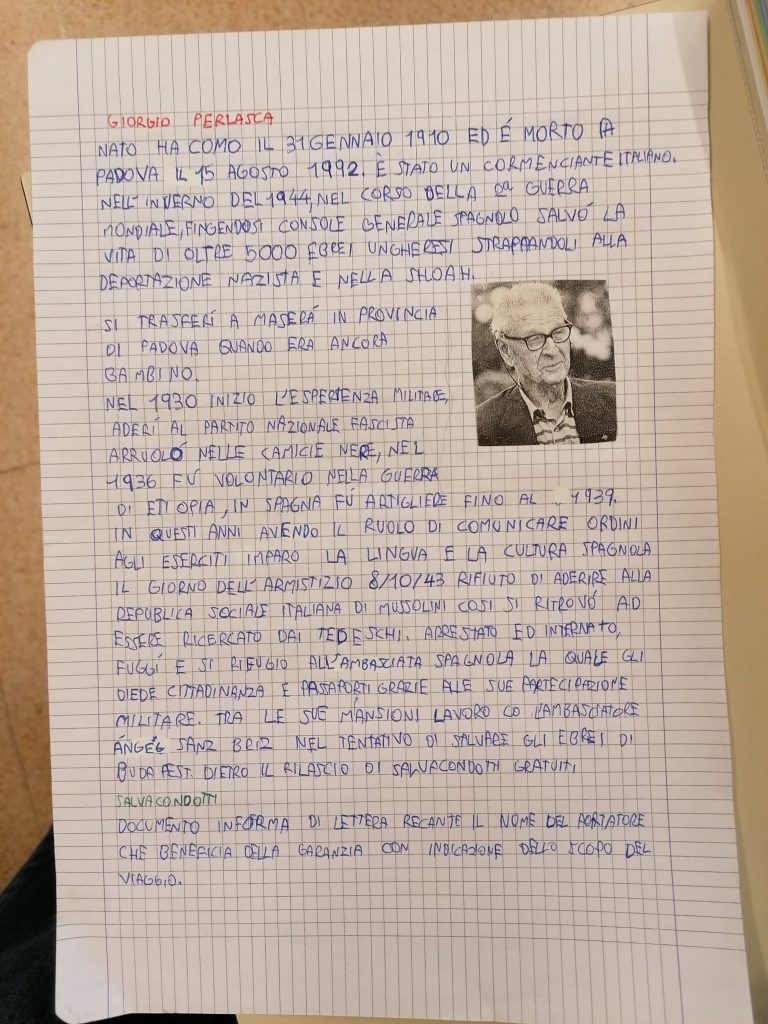 GIORGIO PERLASCA
NATO HA COMO IL 31 GENNAIO 1910 ED É MORTO A
PADOVA IL 15 AGOSTO 1992. È STATO UN CORMENCIANTE ITALIANO.
NELL'INVERNO DEL 1944, NEL CORSO DELLA 2ª GUERRA
MONDIALE, FINGENDOSI CONSOLE GENERALE SPAGNOLO SALVÓ LA
VITA DI OLTRE 5000 EBREI UNGHERESI STRAPPANDOLI ALLA
DEPORTAZIONE NAZISTA E NELLA SHOAH.
SI TRASFERÍ A MASERÁ IN PROVINCIA
DI PADOVA QUANDO ERA ANCORA
BAMBINO.
NEL 1930 INIZIO L'ESPERIENZA MILITARE,
ADERÍ AL PARTITO NAZIONALE FASCISTA
ARRUOLÓ NELLE CAMICIE NERE, NEL
1936 FÚ VOLONTARIO NELLA GUERRA
DI ETIOPIA, IN SPAGNA FÚ ARTIGLIERE FINO AL 1939.
IN QUESTI ANNI AVENDO IL RUOLO DI COMUNICARE ORDINI
AGLI ESERCITI IMPARO LA LINGUA E LA CULTURA SPAGNOLA
IL GIORNO DELL'ARMISTIZIO 8/10/43 RIFIUTO DI ADERIRE ALLA
REPUBLICA SOCIALE ITALIANA DI MUSSOLINI COSI SI RITROVÓ AD
ESSERE RICERCATO DAI TEDESCHI. ARRESTATO ED INTERNATO,
FUGGÍ E SI RIFUGIO ALL'AMBASCIATA SPAGNOLA LA QUALE GLI
DIEDE CITTADINANZA E PASSAPORTI GRAZIE ALLE SUE PARTECIPAZIONE
MILITARE. TRA LE SUE MANSIONI LAVORO CO L'AMBASCIATORE
ÁNGEL SANZ BRIZ NEL TENTATIVO DI SALVARE GLI EBREI DI
BUDAPEST. DIETRO IL RILASCIO DI SALVACONDOTTI GRATUITI
SALVACONDOTTI
DOCUMENTO INFORMA DI LETTERA RECANTE IL NOME DEL PORTATORE
CHE BENEFICIA DELLA GARANZIA CON INDICAZIONE DELLO SCOPO DEL
VIAGGIO.